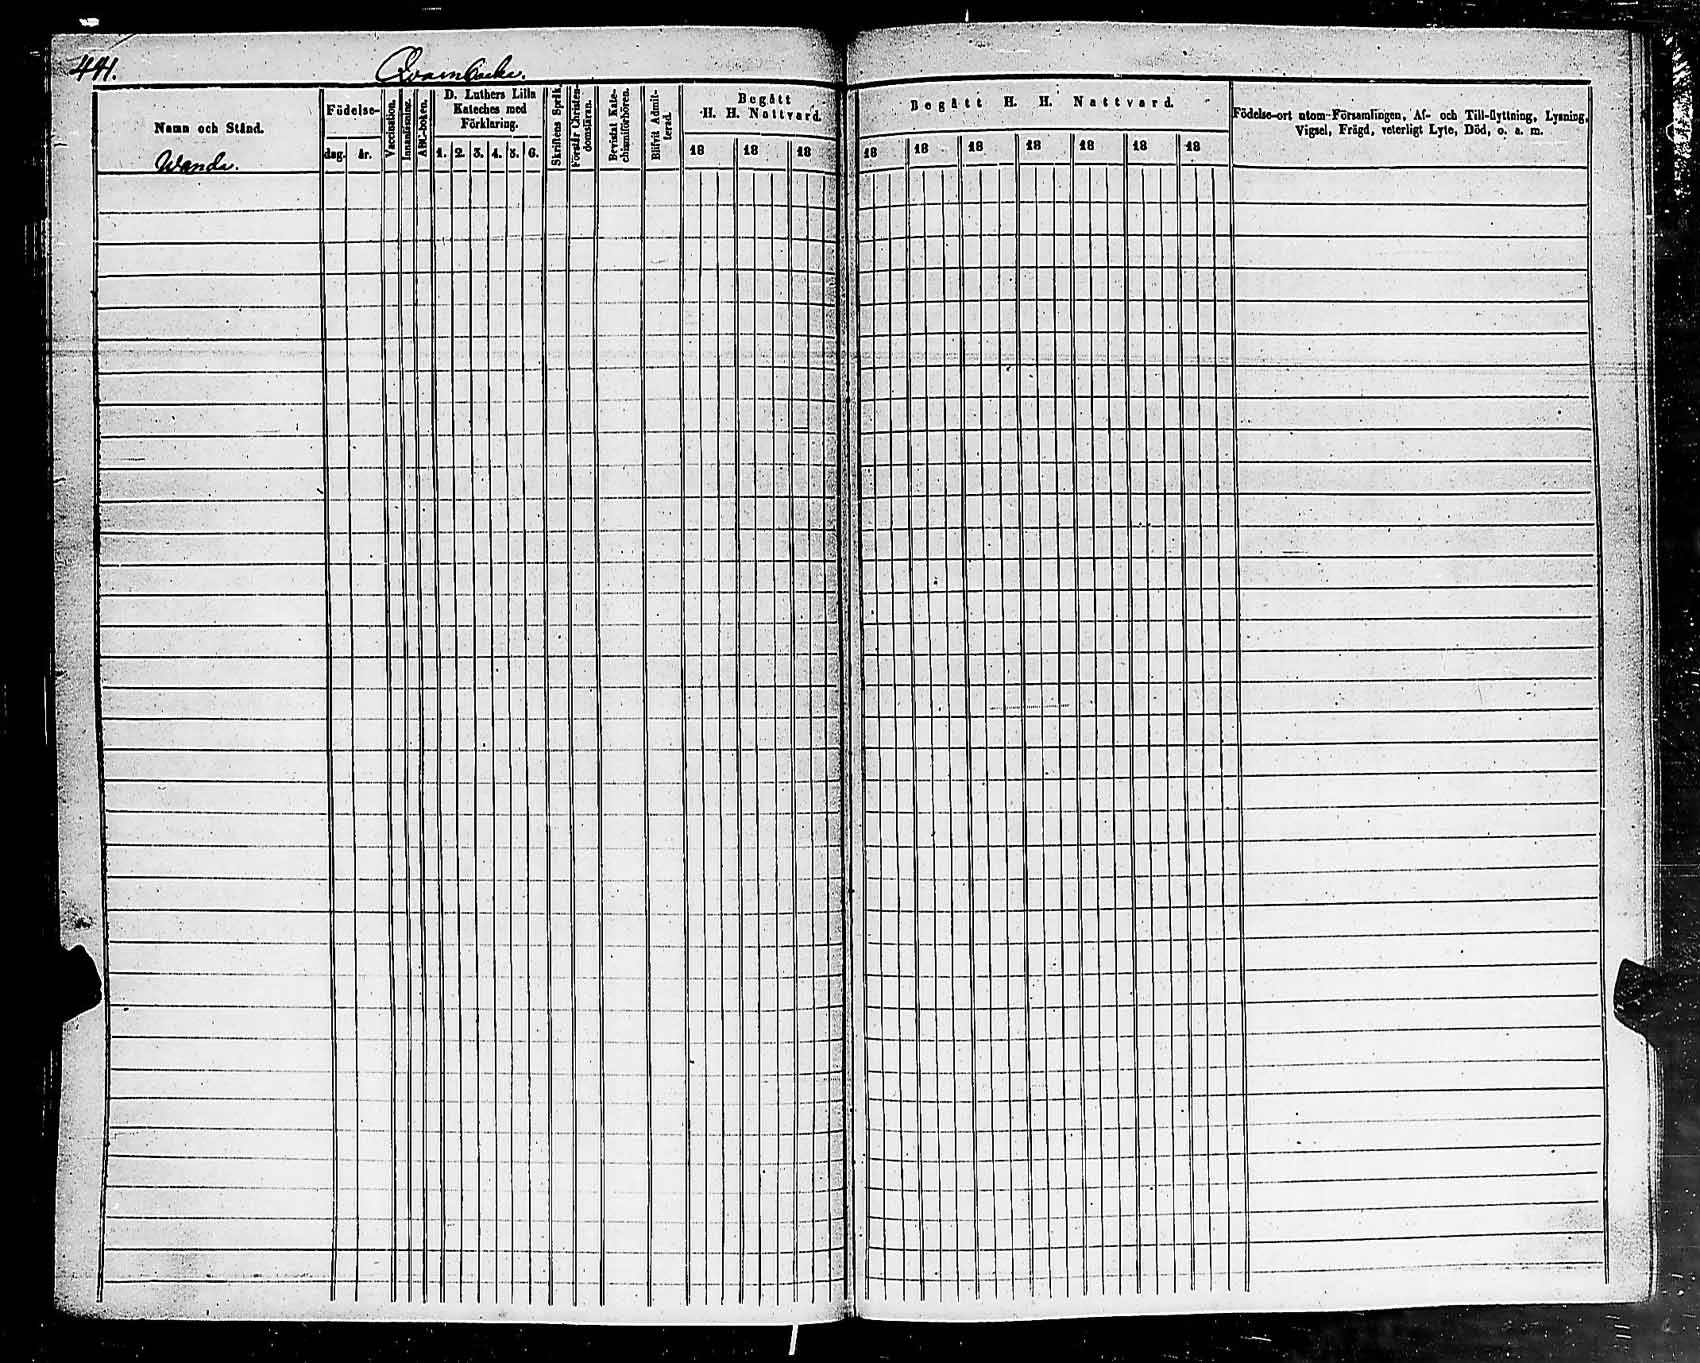 441.
Qvarnbacke.
Namn och Stånd.
Wanda.
Födelse-
dag. år.
Vaccination.
Innanläsning.
ABC-boken.
D. Luthers Lilla
Kateches med
Förklaring.
1. 2. 3. 4. 5. 6.
Skriftens Språk.
Förstår Christen-
domsläran.
Bevistat Kate-
chismiförhören.
Blifvit Admit-
terad.
Begått
H. H. Nattvard.
18 18 18
Begått H. H. Nattvard.
18 18 18 18 18 18 18
Födelse-ort utom Församlingen, Af- och Till-flyttning, Lysning,
Vigsel, Frägd, veterligt Lyte, Död, o. a. m.